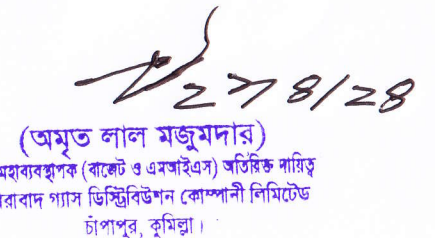 ২১/৪/২৪
(অমৃত লাল মজুমদার)
মহাব্যবস্থাপক (বাজেট ও এমআইএস) অতিরিক্ত দায়িত্ব
রাবাদ গ্যাস ডিস্ট্রিবিউশন কোম্পানী লিমিটেড
চাঁপাপুর, কুমিল্লা।